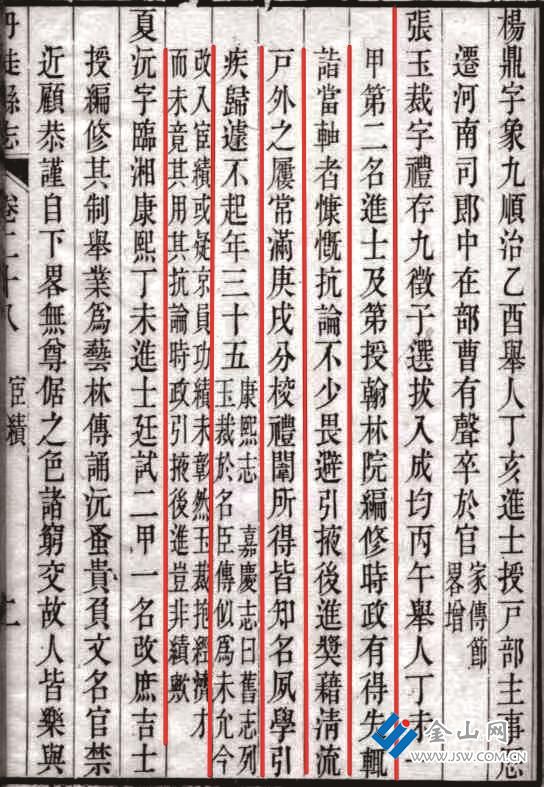 楊鼎字象九順治乙酉舉人丁亥進士授戸部主事
遷河南司郎中在部曹有聲卒於官家傳節
畧增
張玉裁字禮存九徵子選拔入成均丙午舉人丁未
甲第二名進士及第授翰林院編修時政有得失輒
詣當軸者慷慨抗論不少畏避引掖後進奬藉清流
戸外之屨常滿庚戌分校禮闈所得皆知名夙學引
疾歸遽不起年三十五康熙志 嘉慶志曰舊志列
玉裁於名臣傳似爲未允今
改入宦績或疑京員功績未彰然玉裁抱經濟才
而未竟其用其抗論時政引掖後進豈非績歟
夏沅字臨湘康熙丁未進士廷試二甲一名改庶吉士
授編修其制舉業爲藝林傳誦沅蚤貴負文名官禁
近顧恭謹自下畧無尊倨之色諸窮交故人皆樂與
丹徒縣志 卷二十八 宦績
金山网
WWW.JSW.COM.CN